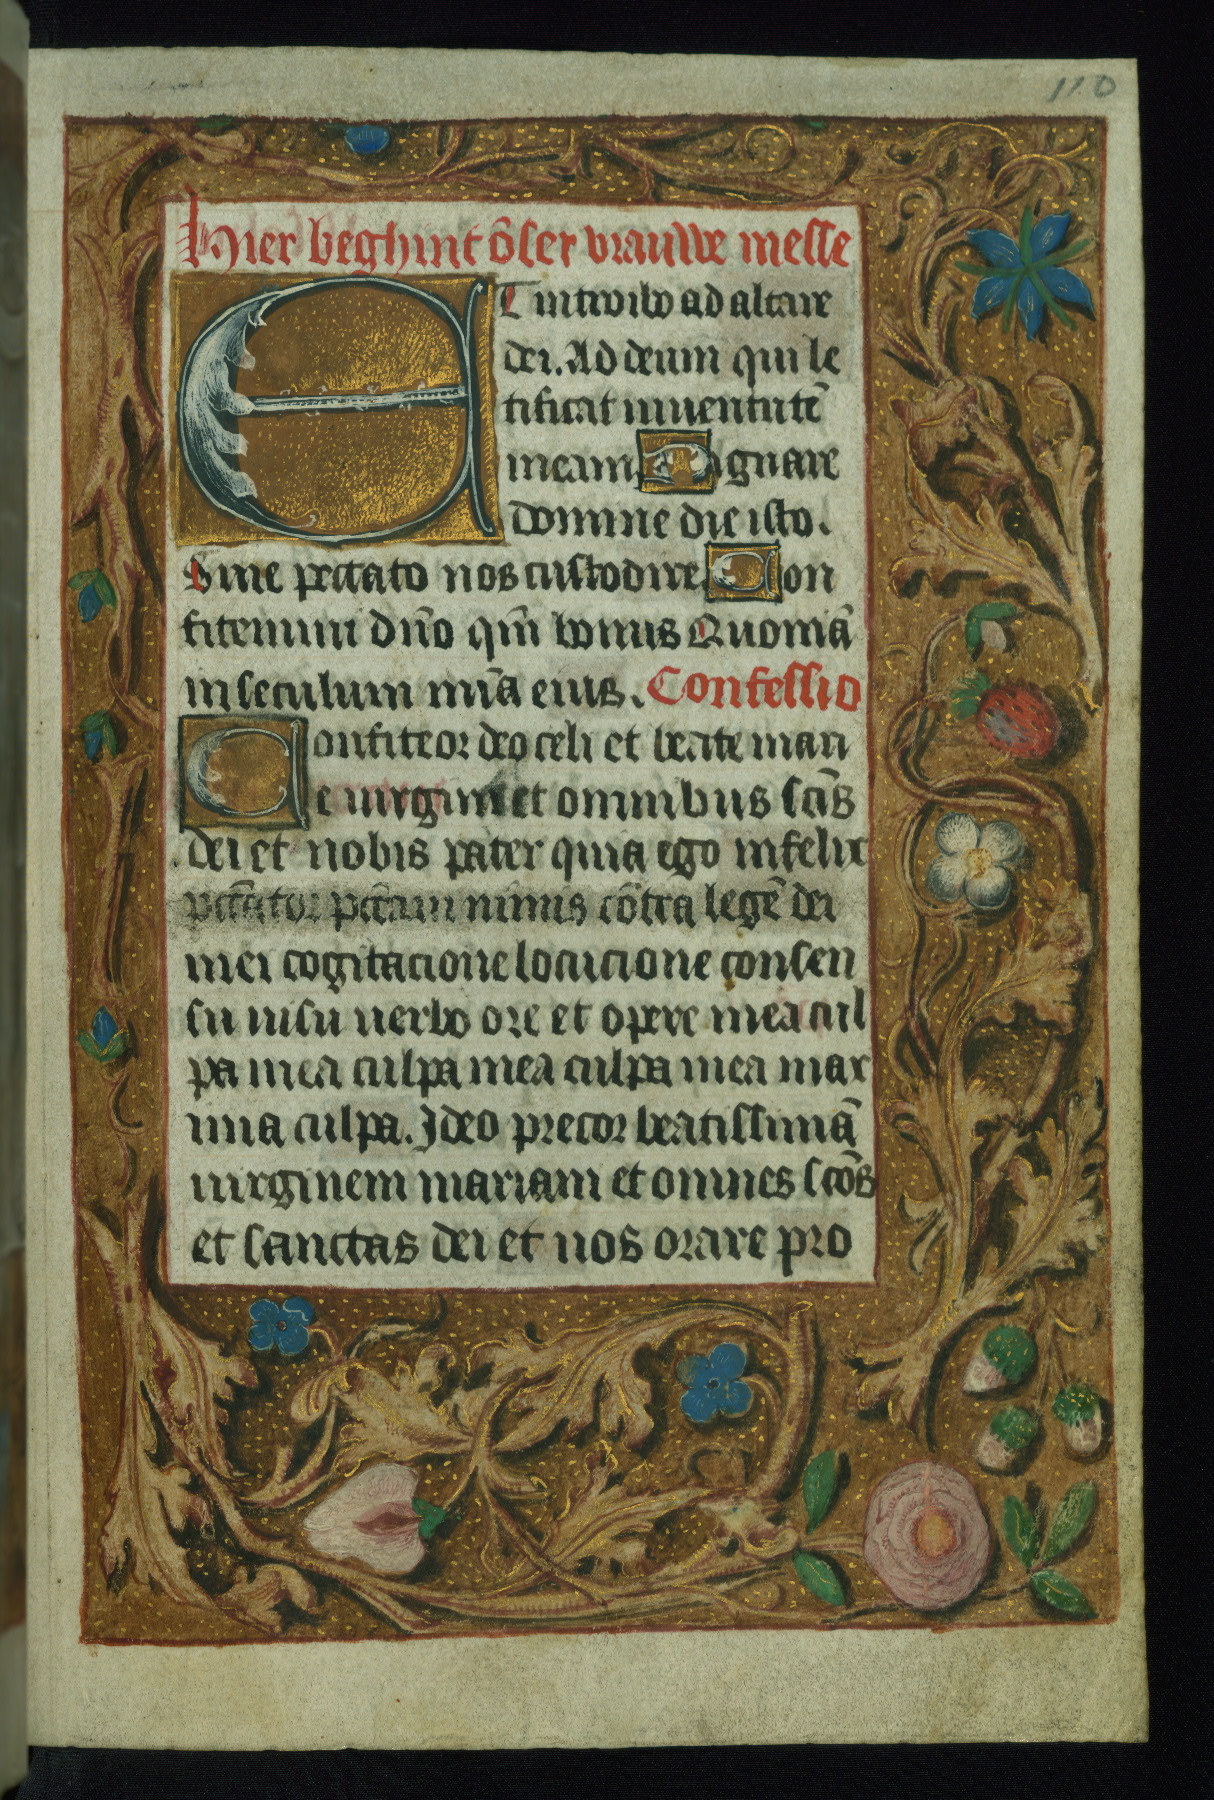 110
Hier beghint ōser vrauwe messe
ET introibo ad altare
dei. Ad deum qui le
tificat iuuentutē
meam Dignare
domine die isto.
Sine peccato nos custodire Con
fitemini dn̄o qm̄ bonus Quoniā
in seculum mīa eius. Confessio
Confiteor deo celi et beate mari
e uirgini et omnibus scīs
dei et nobis pater quia ego infelix
pctātor pctāui nimis cōtra legē dei
mei cogitacione locucione consen
su uisu uerbo ore et opere mea cul
pa mea culpa mea culpa mea max
ima culpa. Ideo precor beatissimā
uirginem mariam et omnes scōs
et sanctas dei et nos orare pro